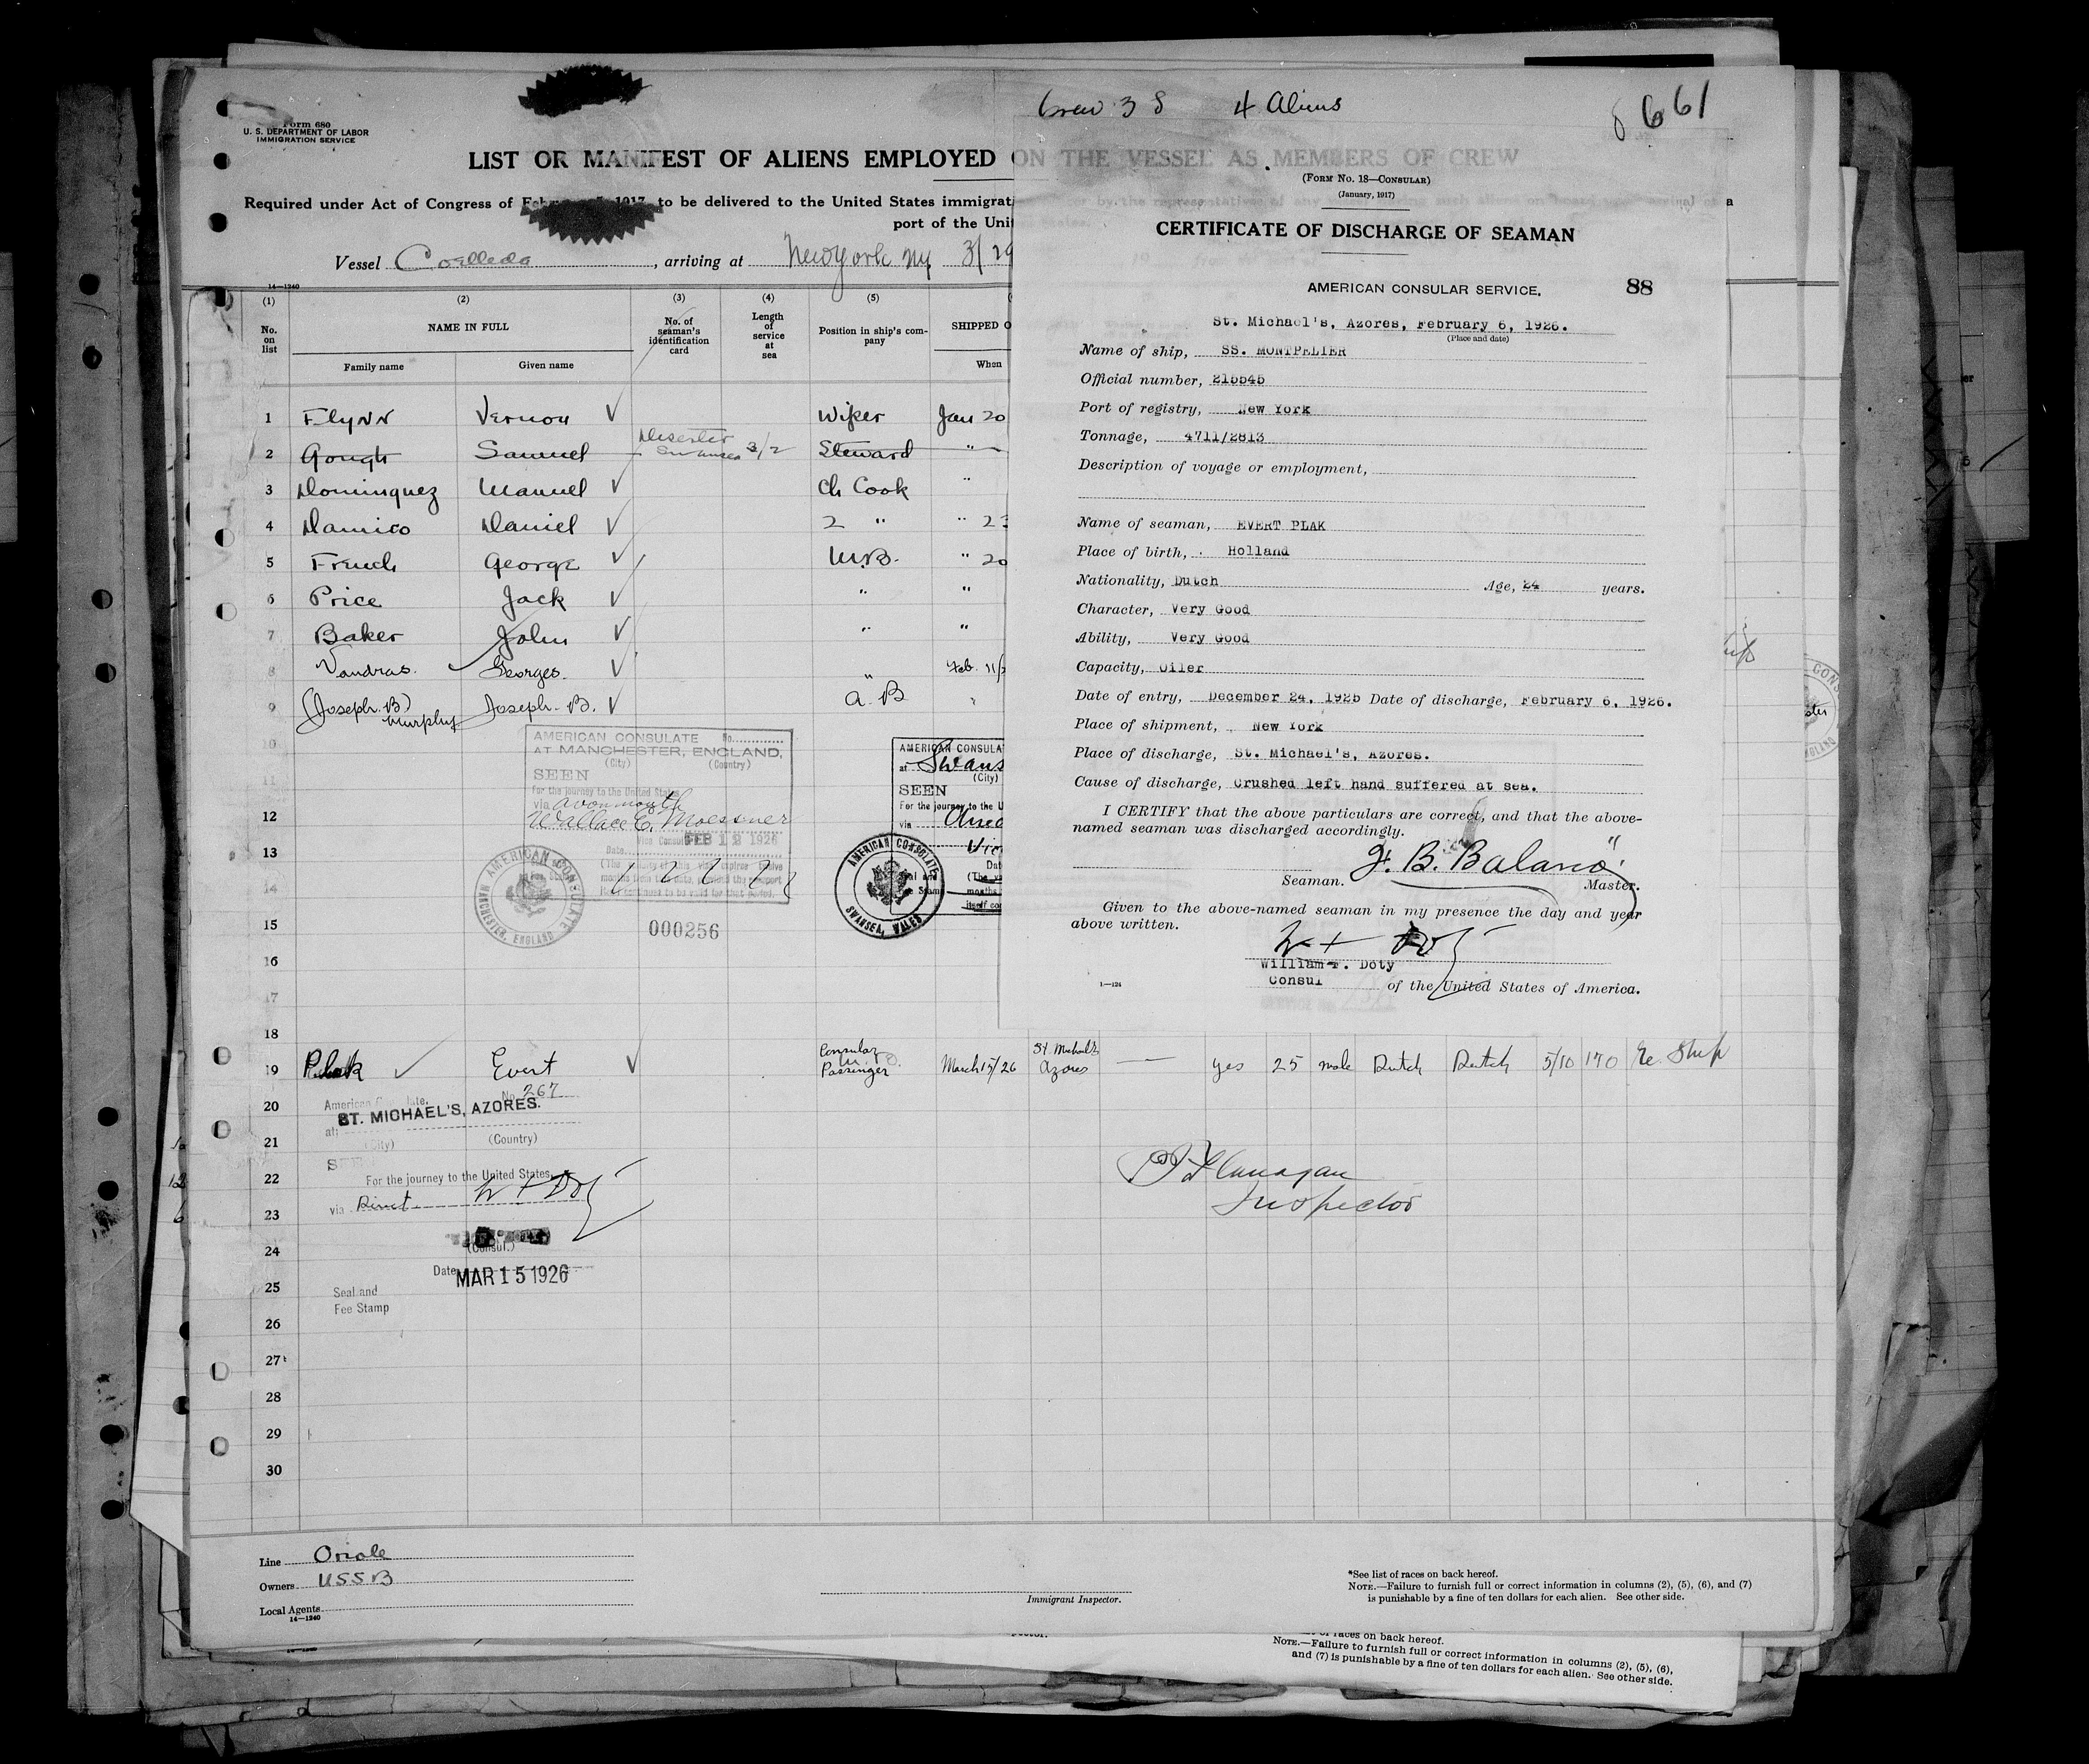 Crew 38 4 Aliens 8661
Form 680
U. S. DEPARTMENT OF LABOR
IMMIGRATION SERVICE
LIST OR MANIFEST OF ALIENS EMPLOYED ON THE VESSEL AS MEMBERS OF CREW
Required under Act of Congress of February 5, 1917, to be delivered to the United States immigrati
port of the Uni
Vessel Coelleda, arriving at New York NY 3/29
14—1240
(1) (2) (3) (4) (5)
No. on list NAME IN FULL No. of seaman's identification card Length of service at sea Position in ship's company SHIPPED O
Family name Given name When
1 Flynn Vernon Wiper Jan 20
2 Gough Samuel Deserter Swansea 3/2 Steward "
3 Dominquez Manuel Ch Cook "
4 Damico Daniel 2 " " 2
5 French George M.B. " 20
6 Price Jack " "
7 Baker John " "
8 Vandras. Georges. " Feb. 11/
9 (Joseph. B.) Murphy Joseph. B. A. B "
10
11
12
13
14
15
16
17
18
AMERICAN CONSULATE No.
AT MANCHESTER, ENGLAND,
(City) (Country)
SEEN
For the journey to the United States
via Avonmouth
Wallace E. Moessner
Vice Consul
Date FEB 12 1926
AMERICAN CONSULATE
MANCHESTER, ENGLAND
000256
AMERICAN CONSULA
at Swans
(City)
SEEN
For the journey to the U
via
AMERICAN CONSULATE
SWANSEA, WALES
19 Plak Evert Consular Passenger March 15/26 St. Michael's Azores — yes 25 male Dutch Dutch 5/10 170 Re. Ship
20
21
22
23
24
25
26
27
28
29
30
No. 267
ST. MICHAEL'S, AZORES.
at:
(City) (Country)
For the journey to the United States
via Direct
(Consul.)
Date MAR 15 1926
Seal and
Fee Stamp
Flanagan
Inspector
Line Oriole
Owners USSB
Local Agents
14—1240
Immigrant Inspector.
*See list of races on back hereof.
NOTE.—Failure to furnish full or correct information in columns (2), (5), (6), and (7)
is punishable by a fine of ten dollars for each alien. See other side.
races on back hereof.
NOTE.—Failure to furnish full or correct information in columns (2), (5), (6),
and (7) is punishable by a fine of ten dollars for each alien. See other side.
(FORM No. 18—CONSULAR)
(January, 1917)
CERTIFICATE OF DISCHARGE OF SEAMAN
AMERICAN CONSULAR SERVICE, 88
St. Michael's, Azores, February 6, 1926.
(Place and date)
Name of ship, SS. MONTPELIER
Official number, 215545
Port of registry, New York
Tonnage, 4711/2813
Description of voyage or employment,
Name of seaman, EVERT PLAK
Place of birth, Holland
Nationality, Dutch Age, 24 years.
Character, Very Good
Ability, Very Good
Capacity, Oiler
Date of entry, December 24, 1925 Date of discharge, February 6, 1926.
Place of shipment, New York
Place of discharge, St. Michael's, Azores.
Cause of discharge, Crushed left hand suffered at sea.
I CERTIFY that the above particulars are correct, and that the above-
named seaman was discharged accordingly.
J. B. Balano
Seaman. Master.
Given to the above-named seaman in my presence the day and year
above written.
William F. Doty
Consul of the United States of America.
1—124